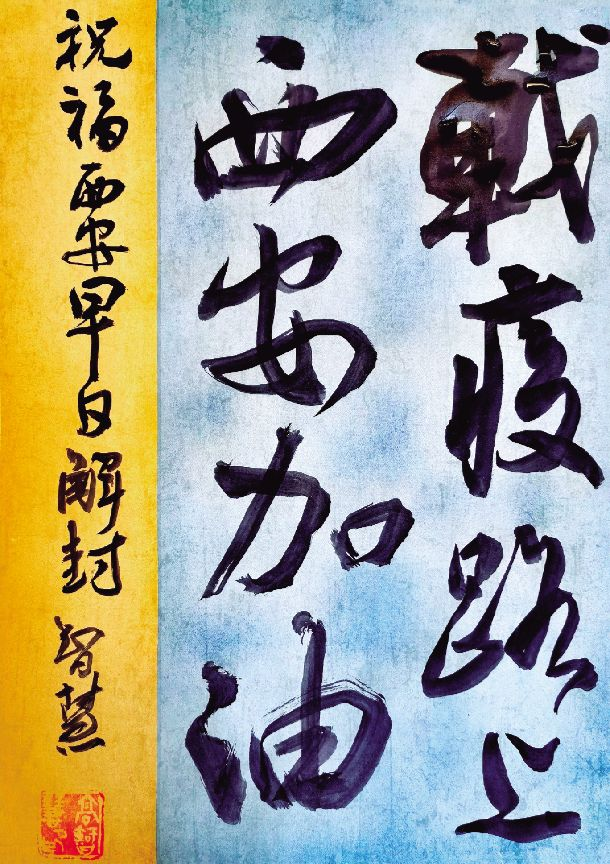 戰疫路上
西安加油
祝福西安早日解封
智慧